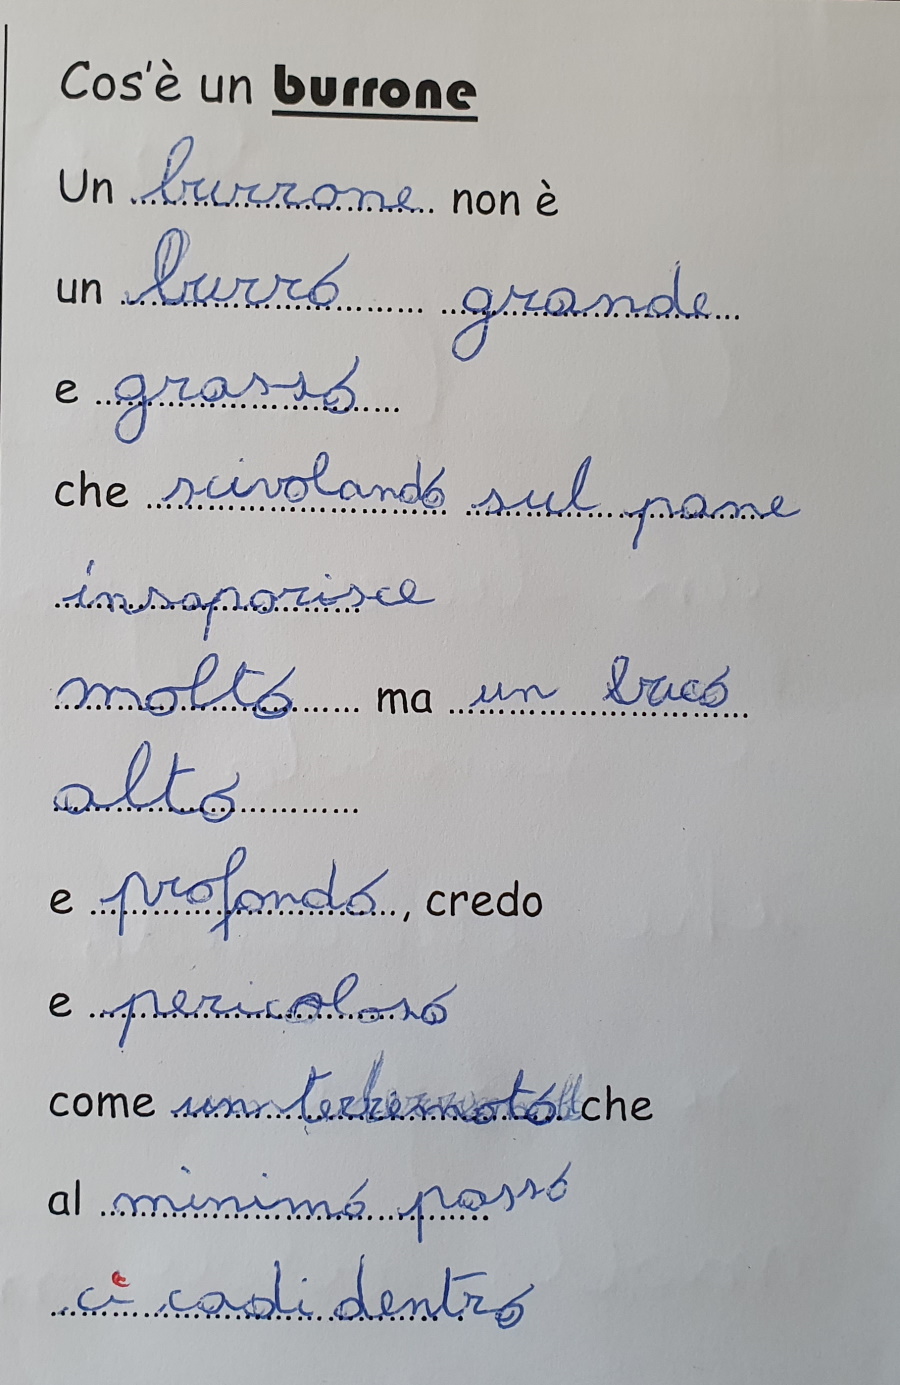 Cos'è un burrone
Un burrone non è
un burro grande
e grasso
che scivolando sul pane
insaporisce
molto ma un buco
alto
e profondo, credo
e pericoloso
come un terremoto che
al minimo passo
ci cadi dentro